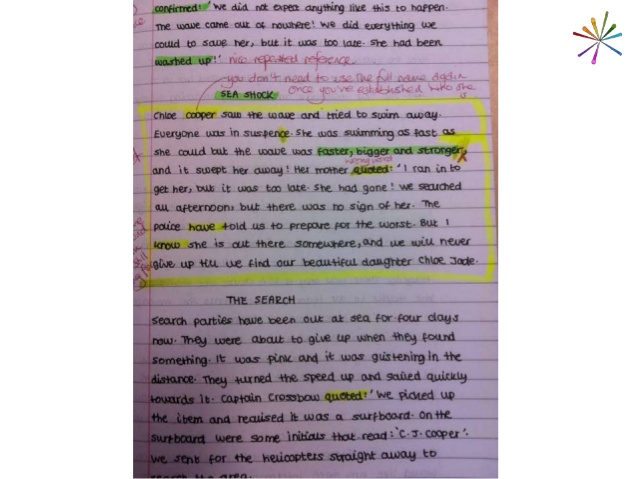 confirmed: 'We did not expect anything like this to happen.
The wave came out of nowhere! We did everything we
could to save her, but it was too late. She had been
washed up!' nice repeated reference
you don't need to use the full name again
SEA SHOCK once you've established who she
Chloe cooper saw the wave and tried to swim away.
Everyone was in suspence. She was swimming as fast as
she could but the wave was faster, bigger and stronger
wrong word
and it swept her away! Her mother quoted: 'I ran in to
get her, but it was too late. She had gone! We searched
all afternoon, but there was no sign of her. The
police have told us to prepare for the worst. But I
know she is out there somewhere, and we will never
give up till we find our beautiful daughter Chloe Jade.
THE SEARCH
Search parties have been out at sea for four days
now. They were about to give up when they found
something. It was pink and it was glistening in the
distance. They turned the speed up and sailed quickly
towards it. Captain Crossbow quoted: 'We picked up
the item and realised it was a surfboard. On the
surfboard were some initials that read: 'C.J. Cooper'.
We sent for the helicopters straight away to
search the area.